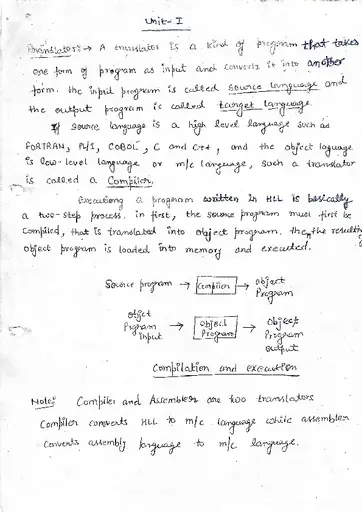 Unit- I
Translator:→ A translator is a kind of program that takes
one form of program as input and converts it into another
form. The input program is called source language and
the output program is called target language.
If source language is a high level language such as
FORTRAN, PL/1, COBOL, C and C++, and the object laguage
is a low-level language or m/c language, such a translator
is called a Compiler.
Executing a program written in HLL is basically
a two-step process. in first, the source program must first be
compiled, that is translated into object program. then the resulting
object program is loaded into memory and executed.
Source program → Compiler → Object
Program
Object
Program → Object → Object
input Program Program
output
Compilation and execution
Note:- Compiler and Assembler are two translators
Compiler converts HLL to m/c language while assembler
converts assembly language to m/c language.